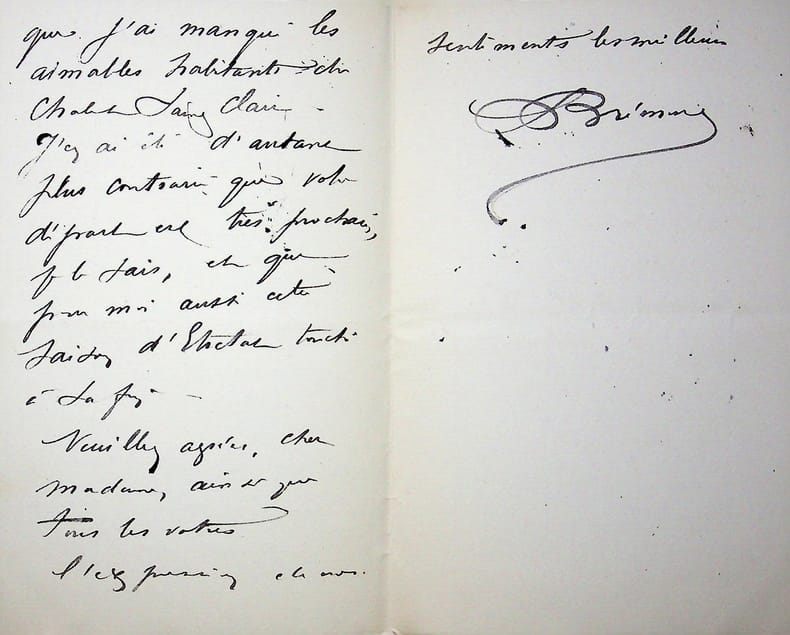 que j'ai manqué les
aimables habitants du
Chalet Saint Clair -
J'y ai été d'autant
plus contrarié que votre
départ est très prochain,
je le sais, et que
pour moi aussi cette
saison d'Etretat touche
à sa fin -
Veuillez agréer, chère
madame, ainsi que
tous les vôtres
l'expression de mes
sentiments les meilleurs